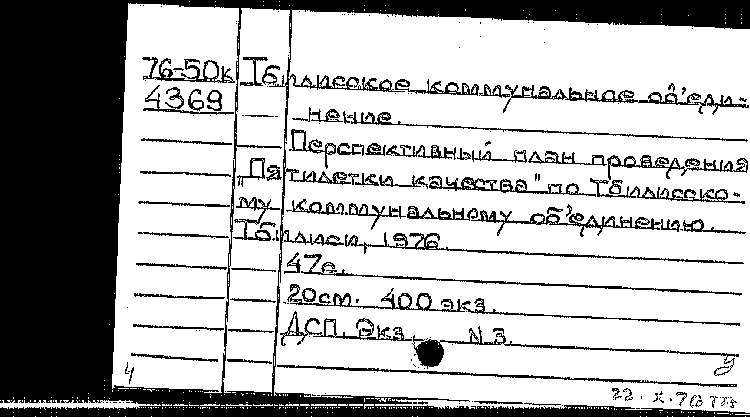 76-50к Тбилисское коммунальное об'еди-
4369 нение.
Перспективный план проведения
"Пятилетки качества" по Тбилисско-
му коммунальному об'единению.
Тбилиси, 1976.
47с.
20см. 400 экз.
ДСП. Экз. N 3.
4 у
22.X.76